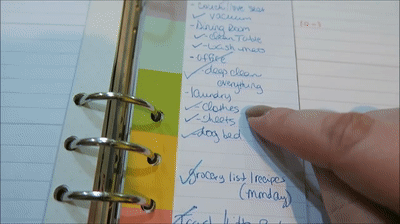 ✓ vacuum
- Dining Room
✓ - Clean Table
✓ - wash
- office
✓ deep clean
everything
- laundry
✓ - clothes
✓ - sheets
✓ - dog bed
✓ Grocery list | recipes
(monday)